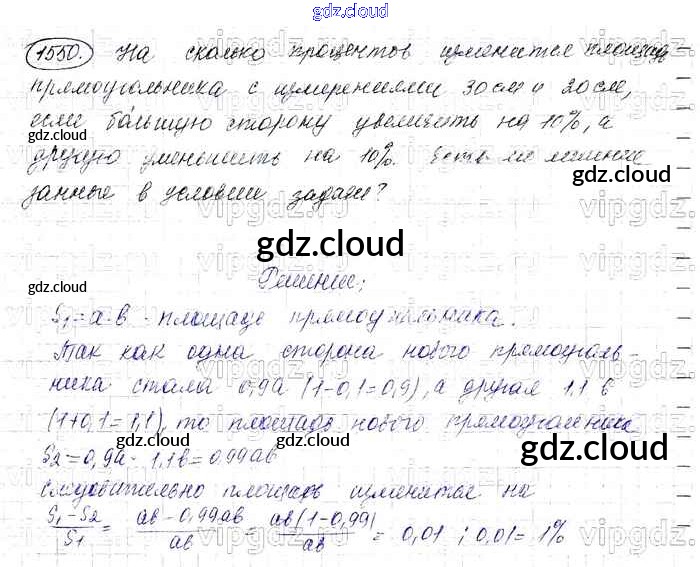 gdz.cloud
1550. На сколько процентов изменится площадь
прямоугольника с измерениями 30 см и 20 см,
если большую сторону увеличить на 10%, а
gdz.cloud
другую уменьшить на 10%. Есть ли лишние
gdz.cloud
данные в условии задачи?
gdz.cloud
gdz.cloud
Решение;
S₁ = a·в - площадь прямоугольника.
Так как одна сторона нового прямоуголь-
ника стала 0,9a (1-0,1=0,9), а другая 1,1 в
(1+0,1=1,1), то площадь нового прямоугольника
gdz.cloud gdz.cloud gdz.cloud
S2 = 0,9a · 1,1в = 0,99aв
следовательно площадь изменится на
(S₁-S2)/S1 = (aв-0,99aв)/aв = aв(1-0,99)/aв = 0,01 ; 0,01 = 1%
gdz.cloud gdz.cloud gdz.cloud